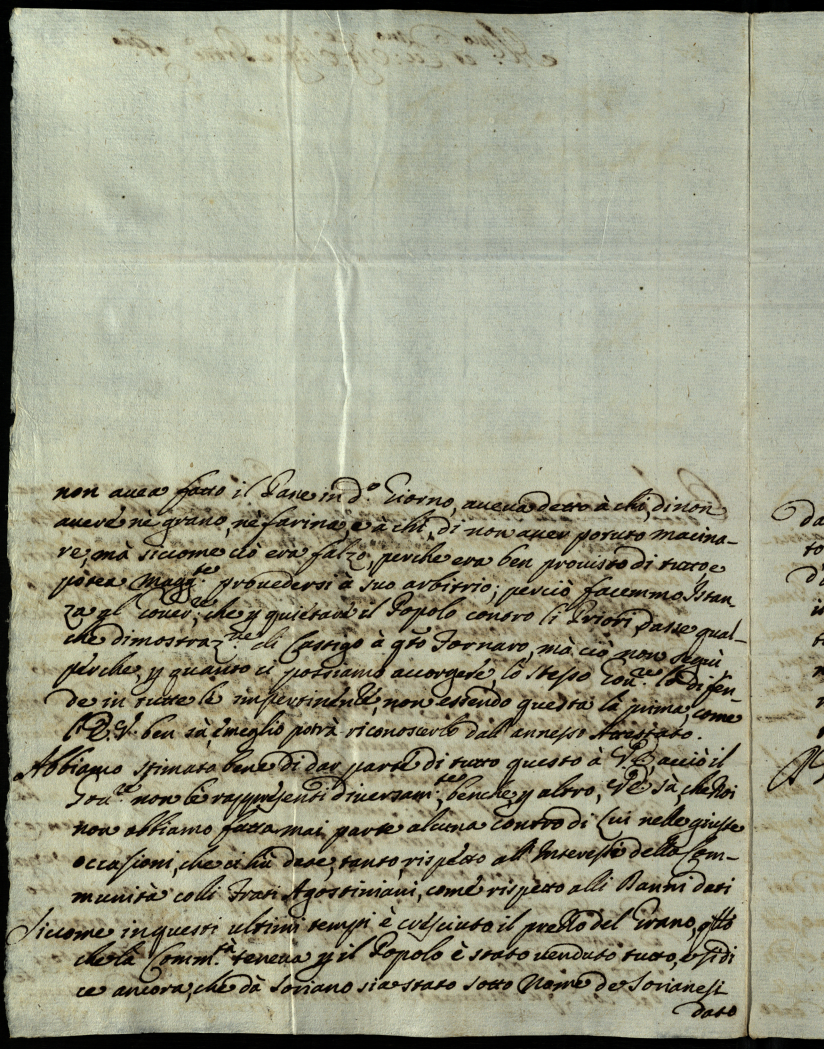 non avea fatto il Pane in d.º Giorno, aveva detto à chi, di non
avere nè grano, nè farina, e à chi, di non aver potuto macina-
re, mà siccome ciò era falzo, perche era ben provisto di tutto e
potea magg.te provedersi à suo arbitrio; perciò facemmo Istan-
za al Gover.re, che p quietare il Popolo contro li Priori, dasse qual-
che dimostraz.ne di Castigo à qto Fornaro, mà ciò non seguì
perche, p quanto ci possiamo accorgere, lo stesso Gov.re lo difen-
de in tutte le impertinenze, non essendo questa la prima, come
V.E. ben sà, e meglio potrà riconoscerlo dall'annesso Attestato.
Abbiamo stimato bene di dar parte di tutto questo à V.E. acciò il
Gov.re non le rappresenti diversam.te, benche p altro, V.E. sà che Noi
non abbiamo fatta mai parte alcuna contro di Lui nelle giuste
occasioni, che ci hà date, tanto rispetto all'Interesse della Com-
munità colli Frati Agostiniani, come rispetto alli Danni dati
Siccome in questi ultimi tempi è cresciuto il prezzo del Grano, qtto
che la Comm.tà teneva p il Popolo è stato venduto tutto, e si di
ce ancora, che dà Soriano sia stato sotto Nome de Sorianesi
dato